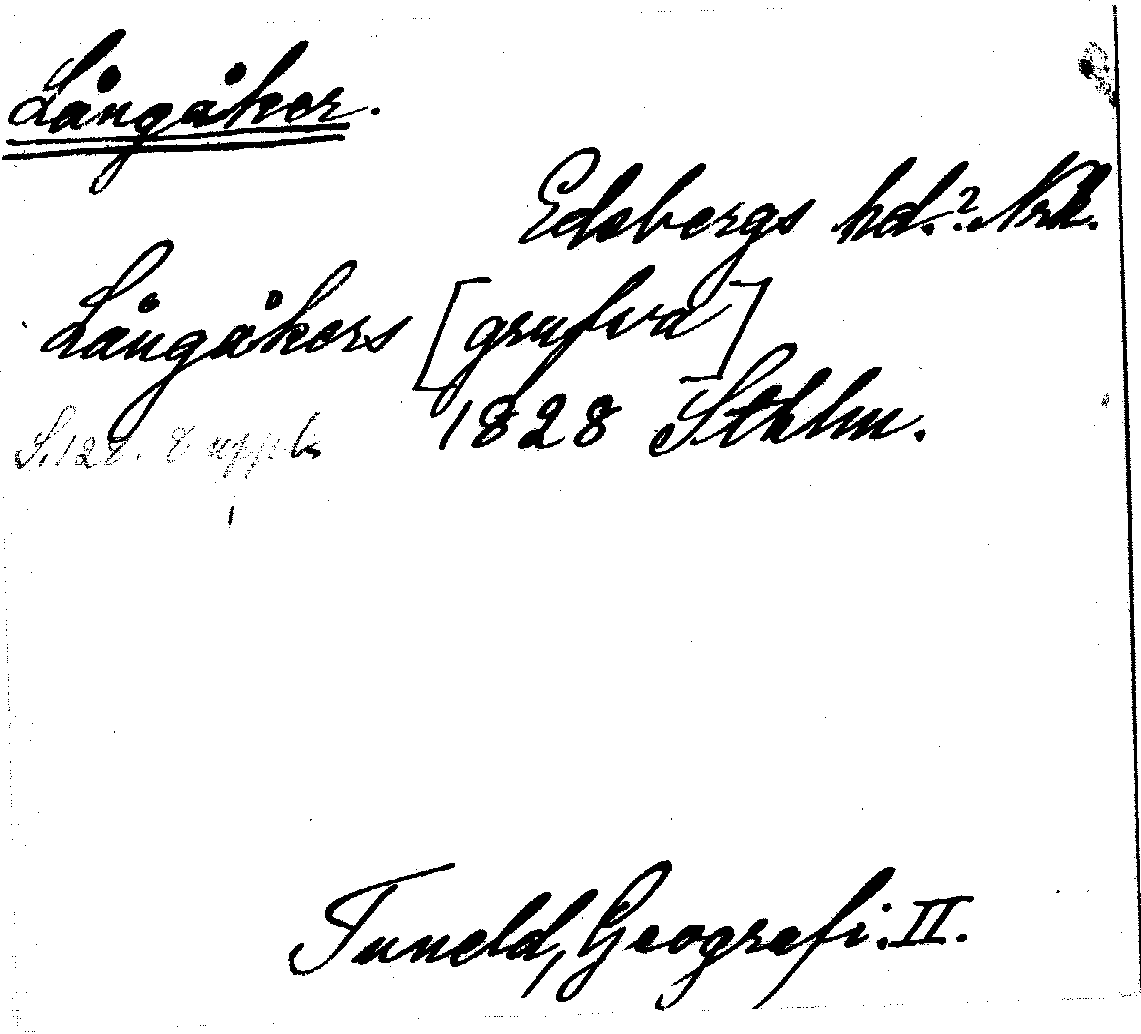 Långåker.
Edsbergs hd.? Nrk.
Långåkers [grufva]
1828 Sthlm.
S. 128. 8 uppl.
Tuneld, Geografi. II.